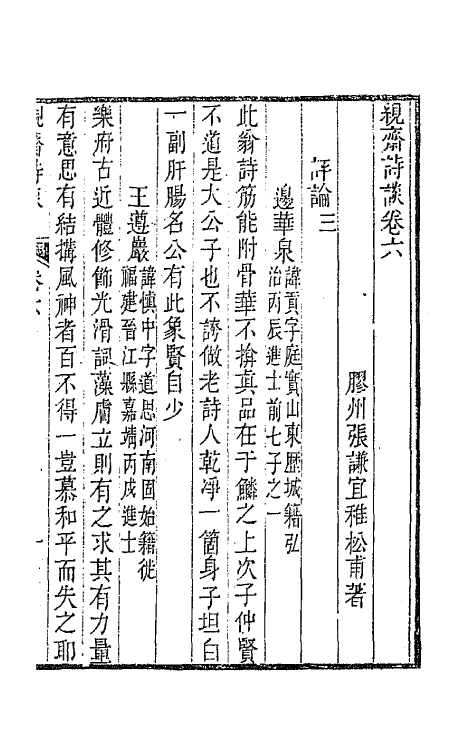 䌹齋詩談卷六
膠州張謙宜稚松甫著
評論三
邊華泉
諱貢字庭實山東歷城籍弘
治丙辰進士前七子之一
此翁詩筋能附骨華不揜眞品在于鱗之上次子仲賢
不道是大公子也不誇做老詩人乾凈一箇身子坦白
一副肝腸名公有此象賢自少
王遵巖
諱慎中字道思河南固始籍徙
福建晉江縣嘉靖丙戌進士
樂府古近體修飾光滑詞藻膚立則有之求其有力量
有意思有結搆風神者百不得一豈慕和平而失之耶